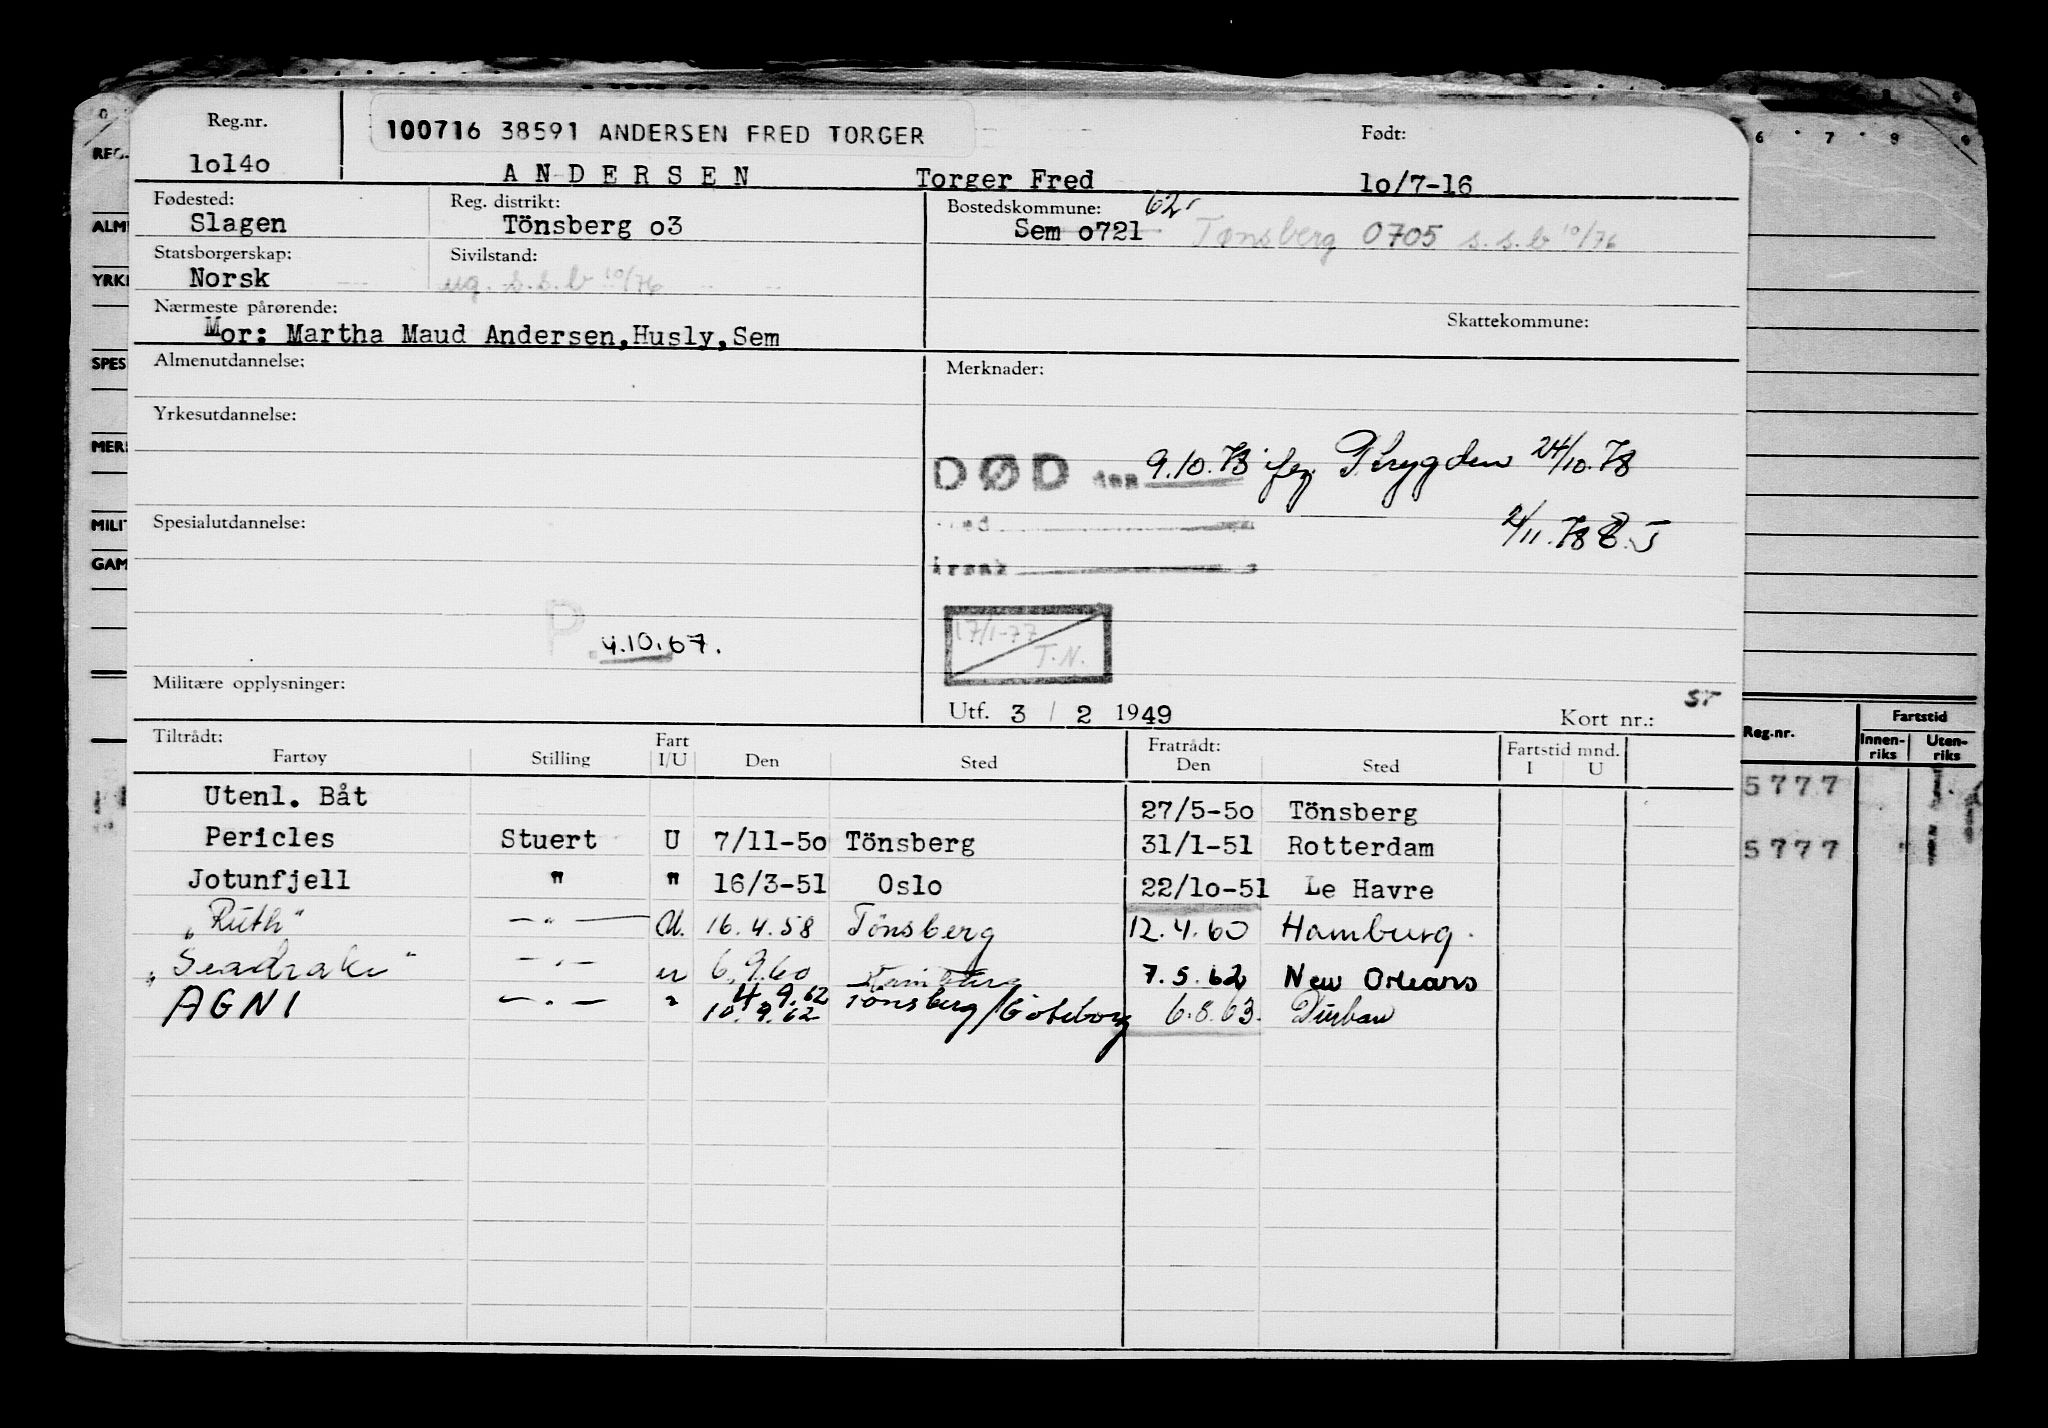 Reg.nr.
100716 38591 ANDERSEN FRED TORGER
Født:
1o14o
ANDERSEN Torger Fred 1o/7-16
Fødested: Slagen
Reg. distrikt: Tönsberg o3
Bostedskommune: 62
Sem o721 Tønsberg 0705 s.s.b 10/76
Statsborgerskap: Norsk
Sivilstand: ug. s.s.b 10/76
Nærmeste pårørende:
Mor: Martha Maud Andersen,Husly,Sem
Skattekommune:
Almenutdannelse:
Merknader:
Yrkesutdannelse:
DØD den 9.10.78 Trygden 24/10.78
2/11.78
Spesialutdannelse:
årsak
P. 4.10.67.
17/1-77
T.N.
Militære opplysninger:
Utf. 3 / 2 1949
Kort nr.:
ST
Tiltrådt: Fratrådt:
Fartøy Stilling Fart I/U Den Sted Den Sted Fartstid mnd. I U
Utenl. Båt 27/5-5o Tönsberg
Pericles Stuert U 7/11-5o Tönsberg 31/1-51 Rotterdam
Jotunfjell " " 16/3-51 Oslo 22/1o-51 Le Havre
"Ruth" — " — U. 16.4.58 Tönsberg 12.4.60 Hamburg.
"Seadrake" — " — u 6.9.60 7.5.62 New Orleans
AGNI — " — " 4.9.62 Tönsberg/Göteborg 6.8.63. Durban
10.9.62
REG.
ALM
YRK
SPES
MER
MILIT
GAM
6 7 8 9
Reg.nr.
Fartstid
Innen-riks
Uten-riks
5777
5777